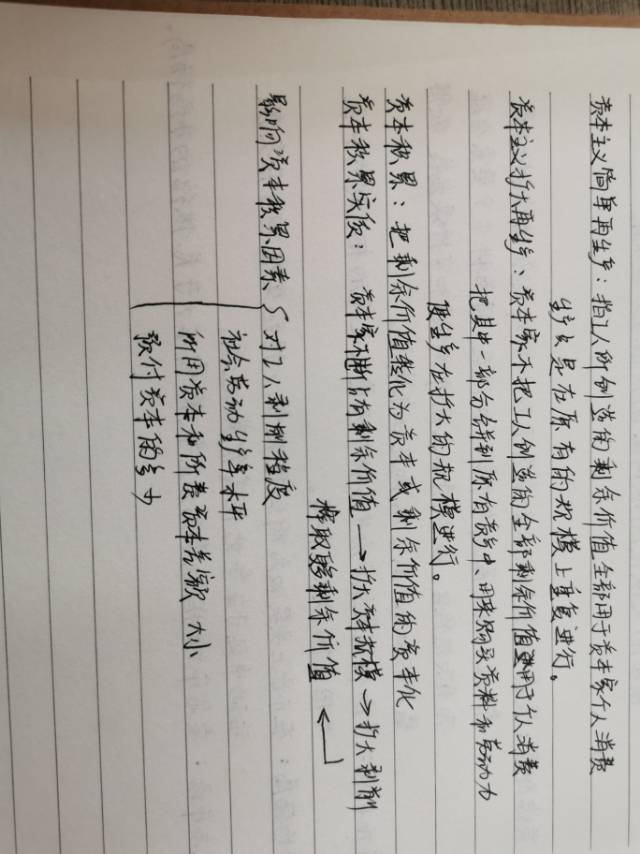 资本主义简单再生产：指工人所创造的剩余价值全部用于资本家个人消费
生产只是在原有的规模上重复进行。
资本主义扩大再生产：资本家不把工人创造的全部剩余价值用于个人消费
把其中一部分合并到原有资本中、用来购买资料和劳动力
使生产在扩大的规模进行。
资本积累：把剩余价值转化为资本或剩余价值的资本化
资本积累实质：资本家不断占有剩余价值→扩大资本规模→扩大剥削
榨取更多剩余价值 ←
影响资本积累因素 { 对工人剥削程度
社会劳动生产率水平
所用资本和所费资本差额大小
预付资本的多少